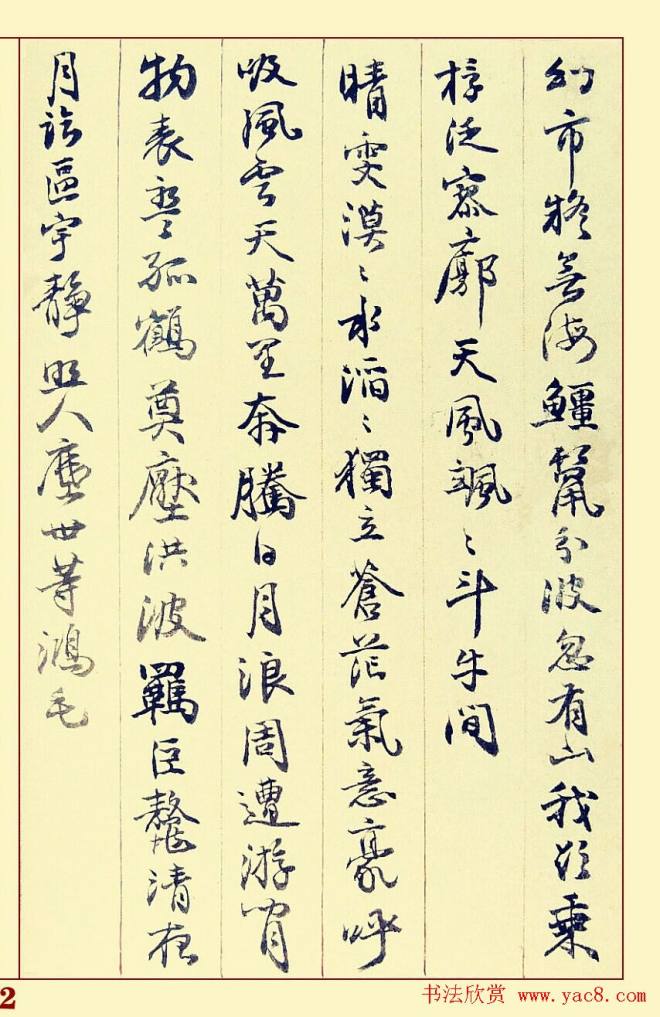 幻市疑無海鱷鬣分波忽有山我欲乘
桴泛寥廓天風颯〻斗牛間
晴雯漠〻水滔〻獨立蒼茫氣意豪呼
吸風雲天萬里奔騰日月浪周遭游
物表孤鶴奠壓洪波羈巨鼇清夜
月區宇靜照人塵世等鴻毛
2
书法欣赏 www.yac8.com